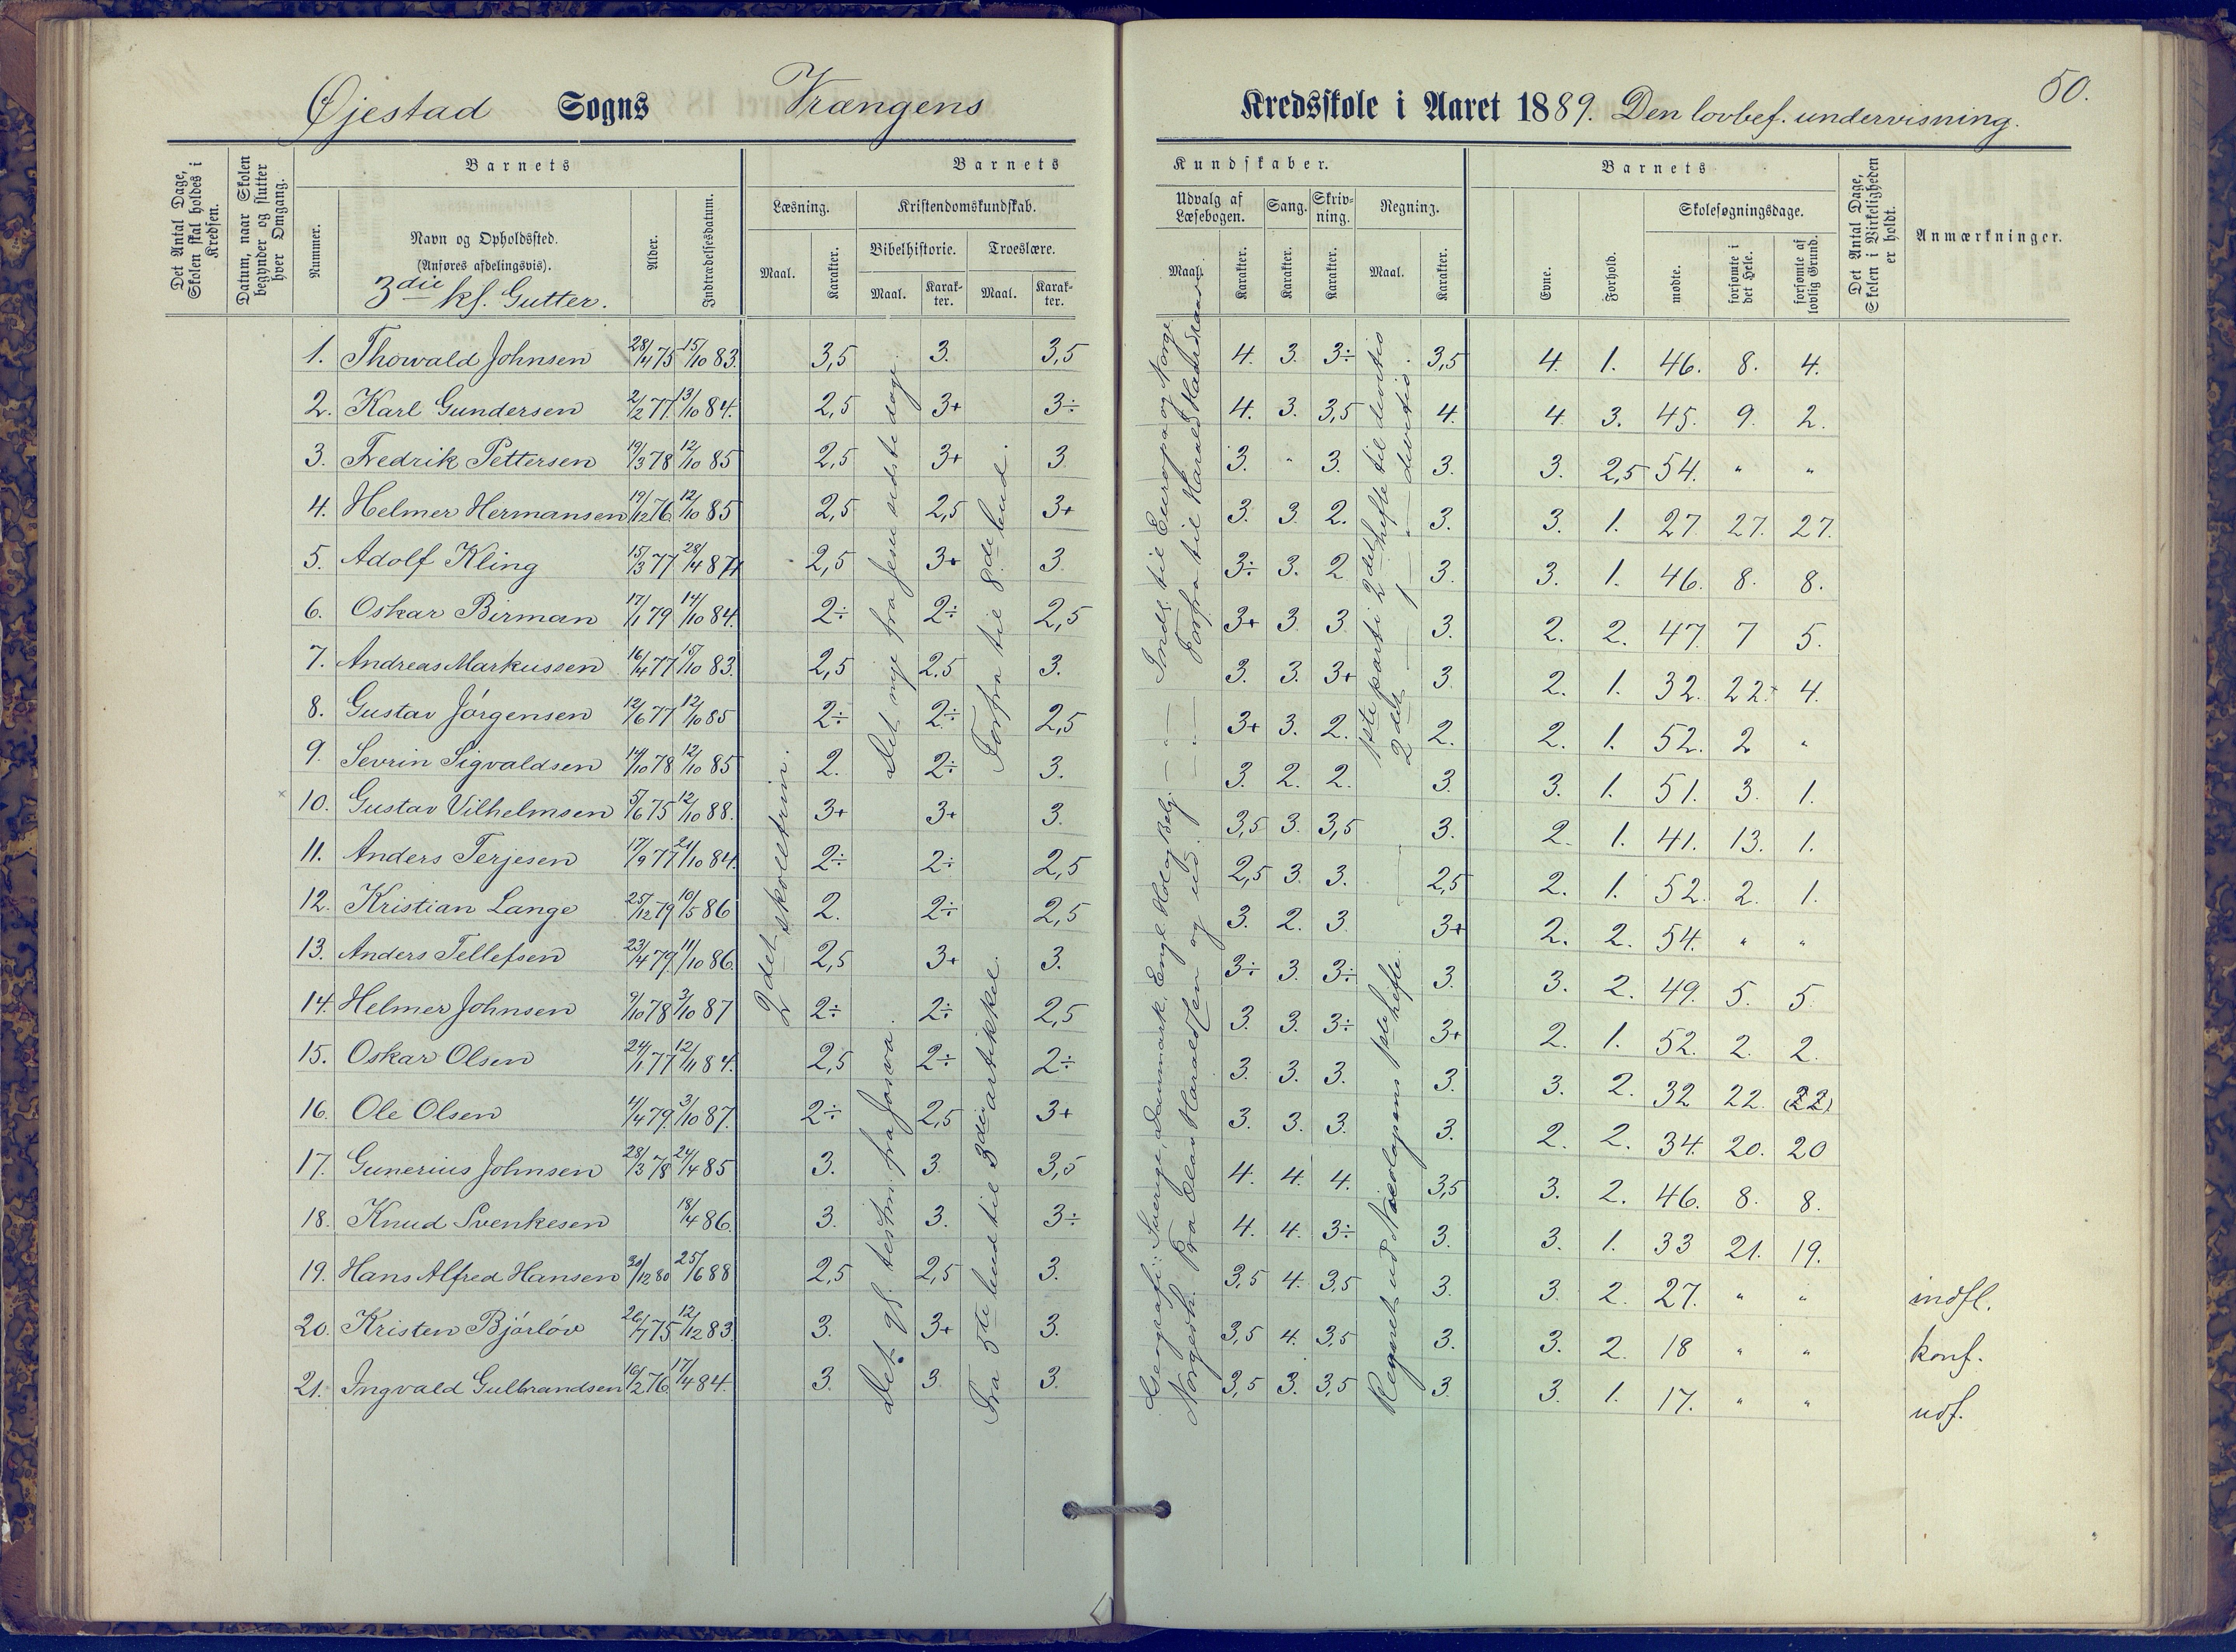 50.
Øjestad Sogns Vrængens Kredsskole i Aaret 1889. Den lovbef. undervisning.
Det Antal Dage, Skolen skal holdes i Kredsen.
Datum, naar Skolen begynder og slutter hver Omgang.
Barnets
Nummer.
Navn og Opholdssted.
(Anføres afdelingsvis).
3die kl. Gutter.
Alder.
Indtrædelsesdatum.
Barnets Kundskaber.
Læsning.
Maal.
Karakter.
Kristendomskundskab.
Bibelhistorie.
Maal.
Karakter.
Troeslære.
Maal.
Karakter.
Udvalg af Læsebogen.
Maal.
Karakter.
Sang.
Karakter.
Skrivning.
Karakter.
Regning.
Maal.
Karakter.
Barnets
Evne.
Forhold.
Skolesøgningsdage.
mødte.
forsømte i det Hele.
forsømte af lovlig Grund.
Det Antal Dage, Skolen i Virkeligheden er holdt.
Anmærkninger.
1. Thorvald Johnsen 28/4 75 15/10 83. 3,5 3. 3,5 4. 3. 3÷ 3,5 4. 1. 46. 8. 4.
2. Karl Gundersen 2/2 77. 13/10 84. 2,5 3+ 3÷ 4. 3. 3,5 4. 4 3. 45. 9. 2.
3. Fredrik Pettersen 19/3 78 12/10 85 2,5 3+ 3 3. " 3. 3. 3. 2,5 54. " "
4. Helmer Hermansen 19/12 76. 12/10 85 2,5 2,5 3+ 3. 3. 2. 3. 3. 1. 27 27. 27.
5. Adolf Kling 15/3 77 28/4 87 2,5 3+ 3 3÷ 3. 2 3. 3. 1. 46. 8. 8.
6. Oskar Birman 17/1 79 14/10 84. 2÷ 2÷ 2,5 3+ 3 3 3. 2. 2. 47. 7 5.
7. Andreas Markussen 16/4 77 15/10 83. 2,5 2,5 3. 3. 3. 3+ 3 2. 1. 32. 22. 4.
8. Gustav Jørgensen 12/6 77 12/10 85 2÷ 2÷ 2,5 3+ 3. 2. 2. 2. 1. 52. 2 "
9. Sevrin Sigvaldsen 14/10 78 12/10 85 2. 2÷ 3. 3. 2. 2. 3. 3. 1. 51. 3. 1.
× 10. Gustav Vilhelmsen 5/6 75 12/10 88. 3+ 3+ 3. 3,5 3. 3,5 3. 2. 1. 41. 13. 1.
11. Anders Terjesen 17/9 77 24/10 84. 2÷ 2÷ 2,5 2,5 3. 3. 2,5 2. 1. 52. 2. 1.
12. Kristian Lange 25/12 79 10/5 86 2. 2÷ 2,5 3. 2. 3. 3+ 2. 2. 54. " "
13. Anders Tellefsen 23/4 79. 11/10 86. 2,5 3+ 3. 3÷ 3. 3÷ 3. 3. 2. 49. 5. 5.
14. Helmer Johnsen 9/10 78 3/10 87 2÷ 2÷ 2,5 3. 3. 3÷ 3+ 2. 1. 52. 2. 2.
15. Oskar Olsen 24/1 77 12/11 84. 2,5 2÷ 2÷ 3. 3. 3. 3. 3. 2. 32 22. 22
16. Ole Olsen 11/4 79. 3/10 87. 2÷ 2,5 3+ 3. 3. 3. 3. 2. 2. 34. 20. 20
17. Gunerius Johnsen 28/3 78 24/4 85 3. 3. 3,5 4. 4. 4. 3,5 3. 2. 46. 8. 8.
18. Knud Svenkesen 18/4 86. 3. 3. 3÷ 4. 4. 3÷ 3. 3. 1. 33 21. 19.
19. Hans Alfred Hansen 30/12 80 25/6 88 2,5 2,5 3. 3,5 4. 3,5 3. 3. 2. 27. " " indfl.
20. Kristen Bjørløv 26/7 75 12/12 83. 3. 3+ 3. 3,5 4. 3,5 3. 3. 2. 18 " " konf.
21. Ingvald Gulbrandsen 16/2 76. 17/4 84. 3. 3. 3. 3,5 3. 3,5 3. 3. 1. 17. " " udf.
2det skoletrin.
Det nye fra Jesu sidste dage.
Det gl. testm. fra Josva.
Forfra til 8de bud.
Fra 5te bud til 3die artikkel.
Geografi: Sverige, Danmark, Engl. Hol. og Belg. — " — Indl. til Europa og Norge.
Norgesh. Fra Olav Haraldsen og ud. — " — Forfra til Harald Haardraade.
1ste parti 2det hefte til divisio.
2det — 1 — " — divisio.
Regnet ud Nicolaysens 1ste hefte.